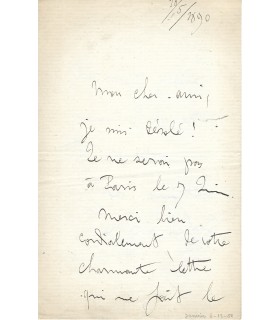 28/5/1890
Mon cher ami,
je suis désolé !
Je ne serai pas
à Paris le 7 Juin
Merci bien
cordialement de votre
charmante lettre
qui me fait le